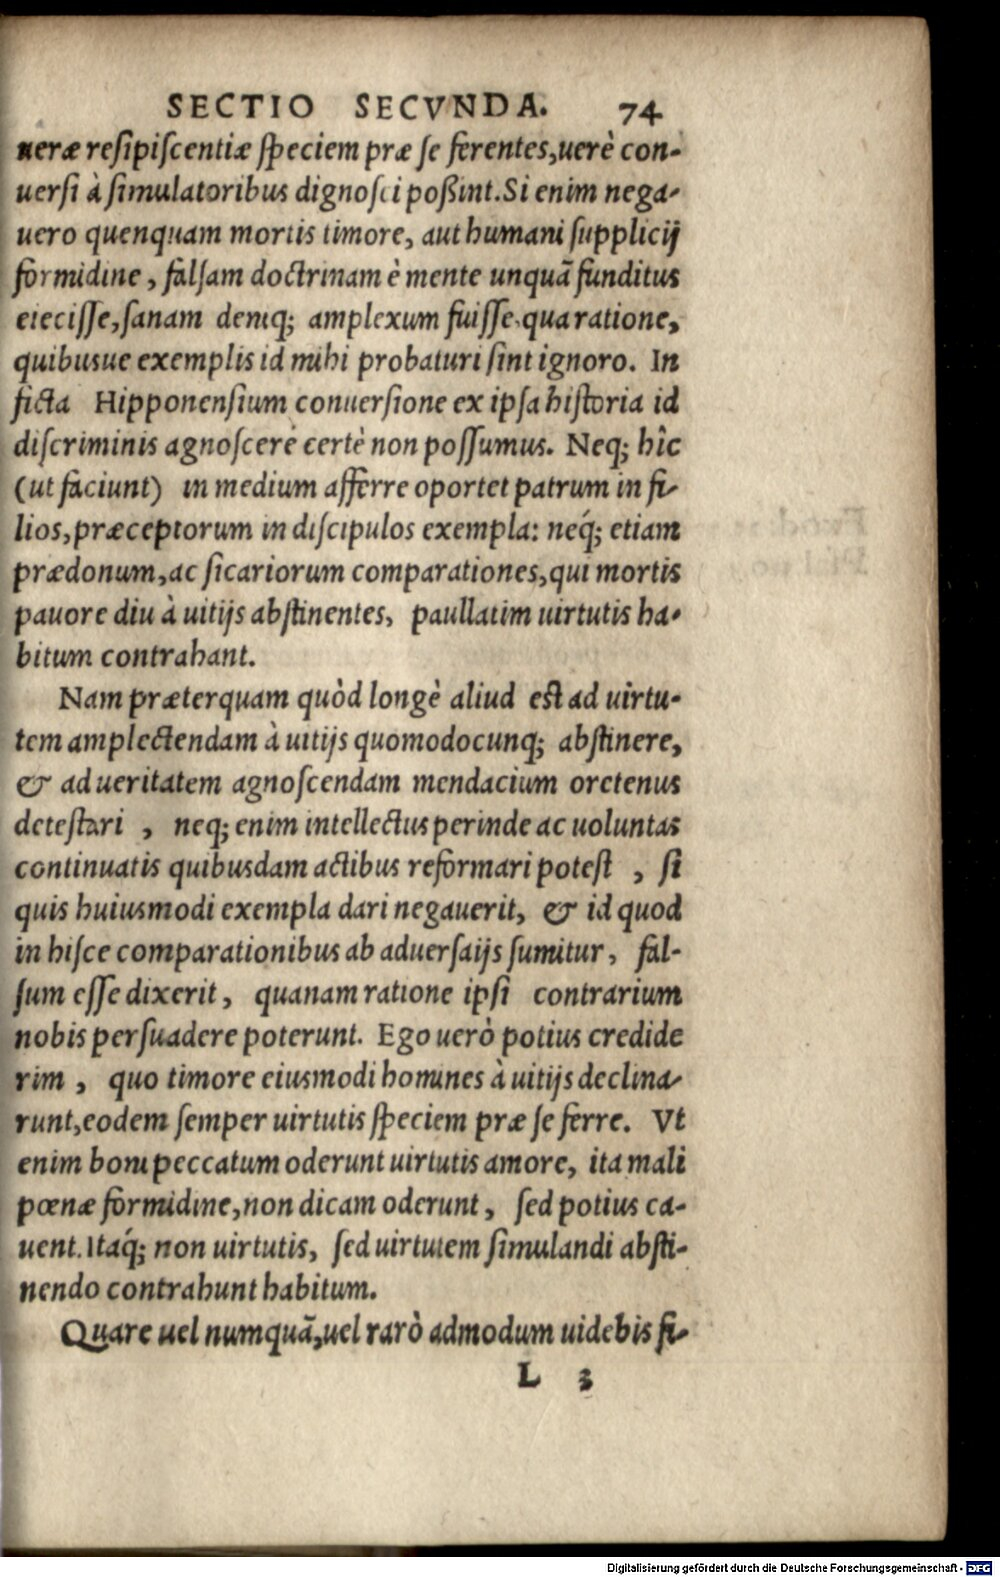 SECTIO SECVNDA. 74
ueræ resipiscentiæ speciem præ se ferentes, uerè con-
uersi à simulatoribus dignosci poßint. Si enim nega-
uero quenquam mortis timore, aut humani supplicij
formidine, falsam doctrinam è mente unquã funditus
eiecisse, sanam demq; amplexum fuisse, qua ratione,
quibusue exemplis id mihi probaturi sint ignoro. In
ficta Hipponensium conuersione ex ipsa historia id
discriminis agnoscere certè non possumus. Neq; hîc
(ut faciunt) in medium afferre oportet patrum in fi-
lios, præceptorum in discipulos exempla: neq́; etiam
prædonum, ac sicariorum comparationes, qui mortis
pauore diu à uitijs abstinentes, paullatim uirtutis ha-
bitum contrahant.
Nam præterquam quòd longè aliud est ad uirtu-
tem amplectendam à uitijs quomodocunq; abstinere,
& ad ueritatem agnoscendam mendacium oretenus
detestari, neq; enim intellectus perinde ac uoluntas
continuatis quibusdam actibus reformari potest, si
quis huiusmodi exempla dari negauerit, & id quod
in hisce comparationibus ab aduersaijs sumitur, fal-
sum esse dixerit, quanam ratione ipsi contrarium
nobis persuadere poterunt. Ego uerò potius credide
rim, quo timore eiusmodi homines à uitijs declina-
runt, eodem semper uirtutis speciem præ se ferre. Vt
enim boni peccatum oderunt uirtutis amore, ita mali
pœnæ formidine, non dicam oderunt, sed potius ca-
uent. Itaq́; non uirtutis, sed uirtutem simulandi absti-
nendo contrahunt habitum.
Quare uel numquã, uel rarò admodum uidebis fi-
L 3
Digitalisierung gefördert durch die Deutsche Forschungsgemeinschaft - DFG